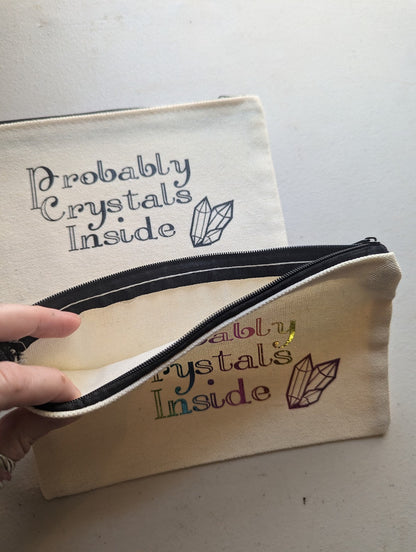 Probably
Crystals
Inside
bably
rystals
Inside